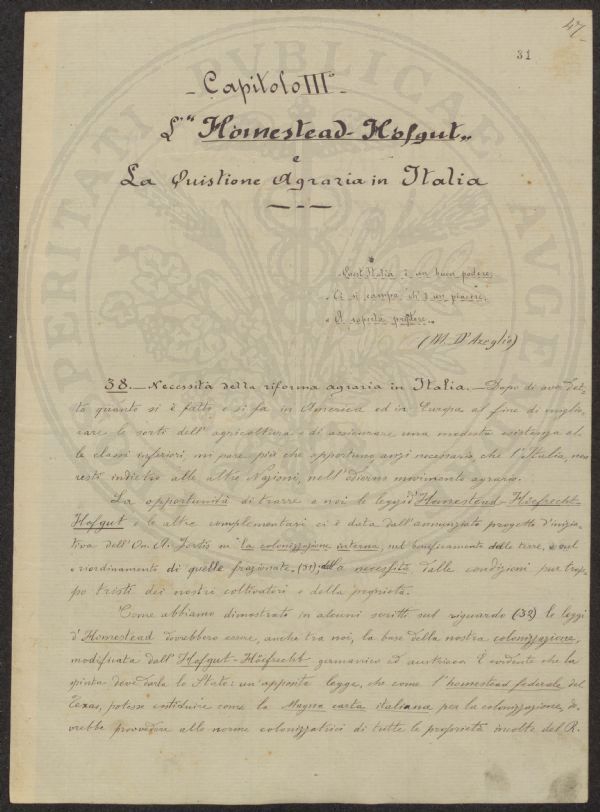 47
31
- Capitolo III° -
L'"Homestead-Hofgut„
e
La Quistione Agraria in Italia
Quest'Italia è un buon podere;
Ci si campa ch'è un piacere;
A saperla
(M. D'Azeglio)
38. — Necessità della riforma agraria in Italia. — Dopo di aver det-
to quanto si è fatto e si fa in America ed in Europa al fine di miglio-
rare le sorti dell'agricoltura e di assicurare una modesta esistenza al-
le classi inferiori, mi pare più che opportuno, anzi necessario, che l'Italia, non
resti indietro alle altre Nazioni, nell'odierno movimento agrario.
La opportunità di trarre a noi le leggi d'Homestead-Höefrecht-
Hofgut e le altre complementari ci è data dall'annunziato progetto d'inizia-
tiva dell'On. A. Fortis su "la colonizzazione interna, sul bonificamento delle terre, e sul
riordinamento di quelle frazionate„ (31); la necessità, dalle condizioni pur trop-
po tristi dei nostri coltivatori e della proprietà.
Come abbiamo dimostrato in alcuni scritti sul riguardo (32) le leggi
d'Homestead dovrebbero essere, anche tra noi, la base della nostra colonizzazione,
modificata dall'Hofgut-Höefrecht germanico ed austriaco. È evidente che la
spinta deve darla lo Stato: un'apposita legge, che come l'homestead federale del
Texas, potesse costituire come la Magna carta italiana per la colonizzazione, do-
vrebbe provvedere alle norme colonizzatrici di tutte le proprietà incolte del R.
PERITAM PVBLICAE AVGE